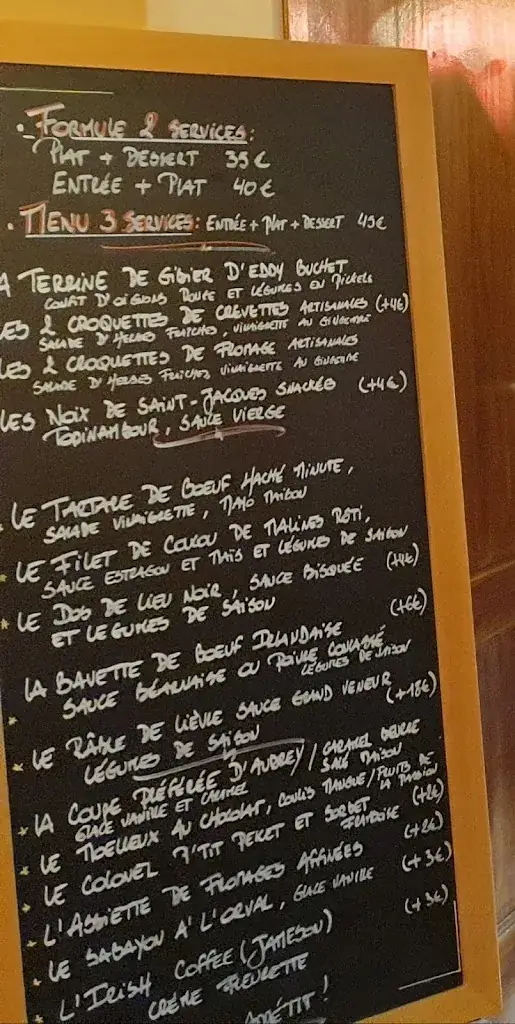 • FORMULE 2 SERVICES:
PLAT + DESSERT 35€
ENTRÉE + PLAT 40€
• MENU 3 SERVICES: ENTRÉE + PLAT + DESSERT 45€
A TERRINE DE GIBIER D'EDDY BUCHET
CONFIT D'OIGNONS ROUGE ET LÉGUMES EN PICKELS
LES 2 CROQUETTES DE CREVETTES ARTISANALES (+4€)
SALADE D'HERBES FRAICHES, VINAIGRETTE AU GINGEMBRE
LES 2 CROQUETTES DE FROMAGE ARTISANALES
SALADE D'HERBES FRAICHES VINAIGRETTE AU GINGEMBRE
LES NOIX DE SAINT-JACQUES SNACKÉES (+4€)
TOPINAMBOUR, SAUCE VIERGE
LE TARTARE DE BOEUF HACHÉ MINUTE,
SALADE VINAIGRETTE, MAYO MAISON
* LE FILET DE COUCOU DE MALINES RÔTI,
SAUCE ESTRAGON ET MAÏS ET LÉGUMES DE SAISON
* LE DOS DE LIEU NOIR, SAUCE BISQUÉE (+4€)
ET LÉGUMES DE SAISON
LA BAVETTE DE BOEUF IRLANDAISE (+6€)
SAUCE BÉARNAISE OU POIVRE CONCASSÉ
LÉGUMES DE SAISON
* LE RÂBLE DE LIÈVRE SAUCE GRAND VENEUR (+18€)
LÉGUMES DE SAISON
* LA COUPE PRÉFÉRÉE D'AUDREY / CARAMEL BEURRE
GLACE VANILLE ET CARAMEL SALÉ MAISON
* LE MOELLEUX AU CHOCOLAT, COULIS MANGUE / FRUITS DE
LA PASSION
* LE COLONEL P'TIT PEKET ET SORBET (+2€)
FRAMBOISE
• L'ASSIETTE DE FROMAGES AFFINÉES (+2€)
* LE SABAYON À L'ORVAL, GLACE VANILLE (+3€)
* L'IRISH COFFEE (JAMESON) (+3€)
CRÈME FLEURETTE
APPÉTIT !